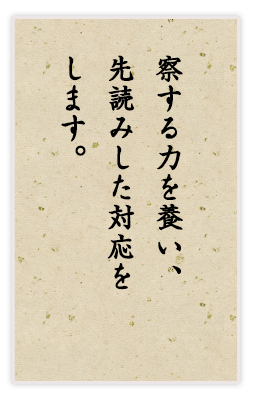 察する力を養い、
先読みした対応を
します。